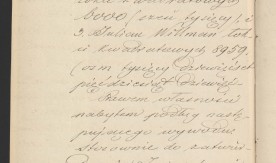 6000 (sześć tysięcy) i
3. Julian Willman łok-
ci kwadratowych 8959.
(ośm tysięcy dziewięćset
pięćdziesiąt dziewięć.
Prawem własności
nabytem podług nastę-
pującego wywodu:
Stosownie do